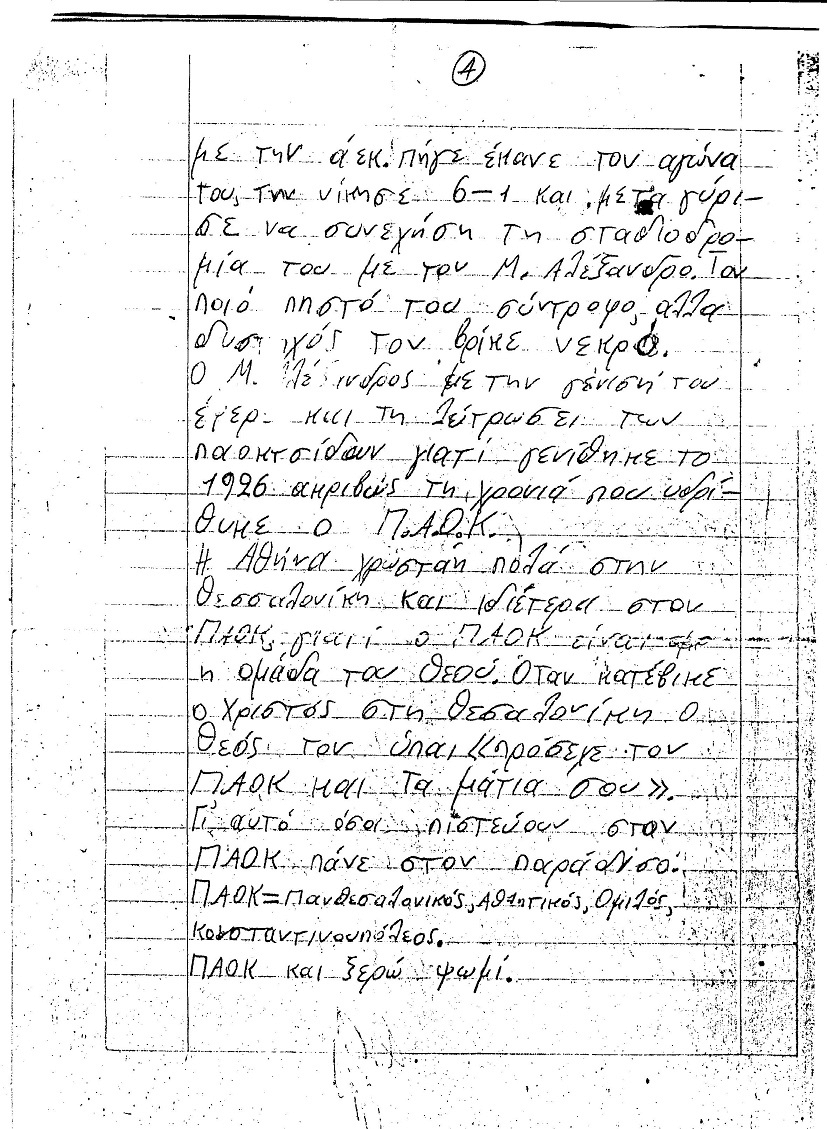 4
με την άεκ. πήγε έκανε τον αγώνα
του, την νίκησε 6-1 και, μετα γύρι-
σε να συνεχήση τη σταδιοδρο-
μία του με τον Μ. Αλέξανδρο. Τον
ποιό πηστό του σύντροφο, αλλα
τον βρίκε νεκρό.
Ο Μ. με την γένισή του
έφερ- και τη λύτρωσει των
παοκτσίδων γιατί γενίθηκε το
1926 ακριβώς τη χρονιά που υδρί-
θυκε ο Π.Α.Ο.Κ.
Η Αθήνα χρωστάη πολά στην
Θεσσαλονίκη και ιδιέτερα στον
ΠΑΟΚ, γιατί ο ΠΑΟΚ είναι
η ομάδα του Θεού. Όταν κατέβικε
ο Χριστός στη Θεσαλονίκη ο
Θεός του ύπαι «πρόσεχε τον
ΠΑΟΚ και τα μάτια σου».
Γι' αυτό όσοι πιστεύουν στον
ΠΑΟΚ πάνε στον παράδισο.
ΠΑΟΚ=Πανθεσαλονικός, Αθλητικός, Ομιλός,
Κονσταντινουπόλεος.
ΠΑΟΚ και ξερώ ψωμί.